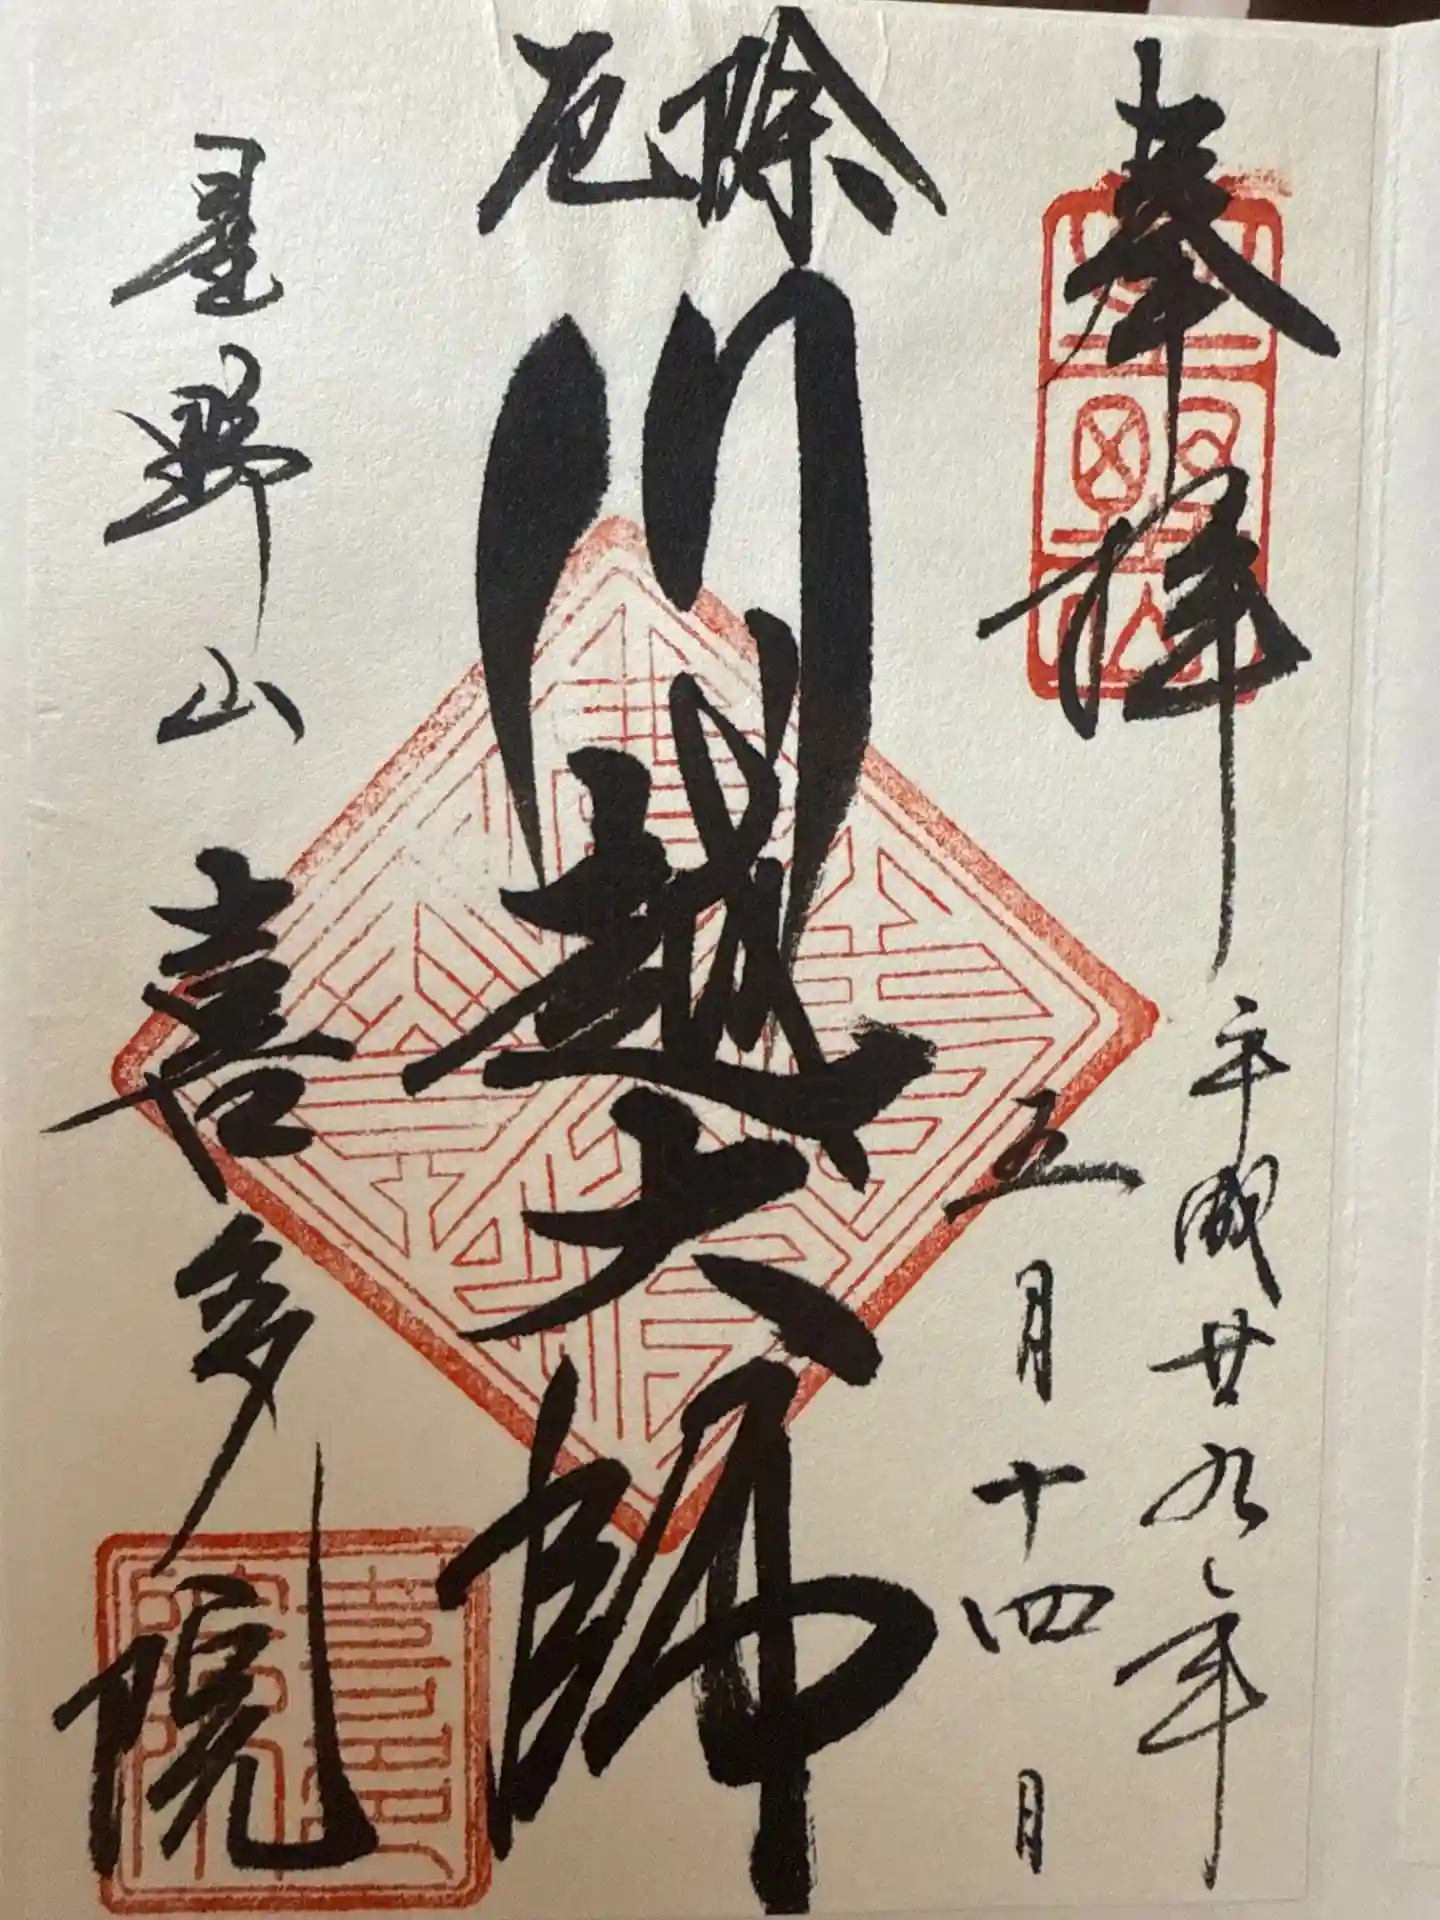 奉拝
星野山
平成廿九年
五月十四日
厄除
川越大師
星野山
喜多院
喜多院